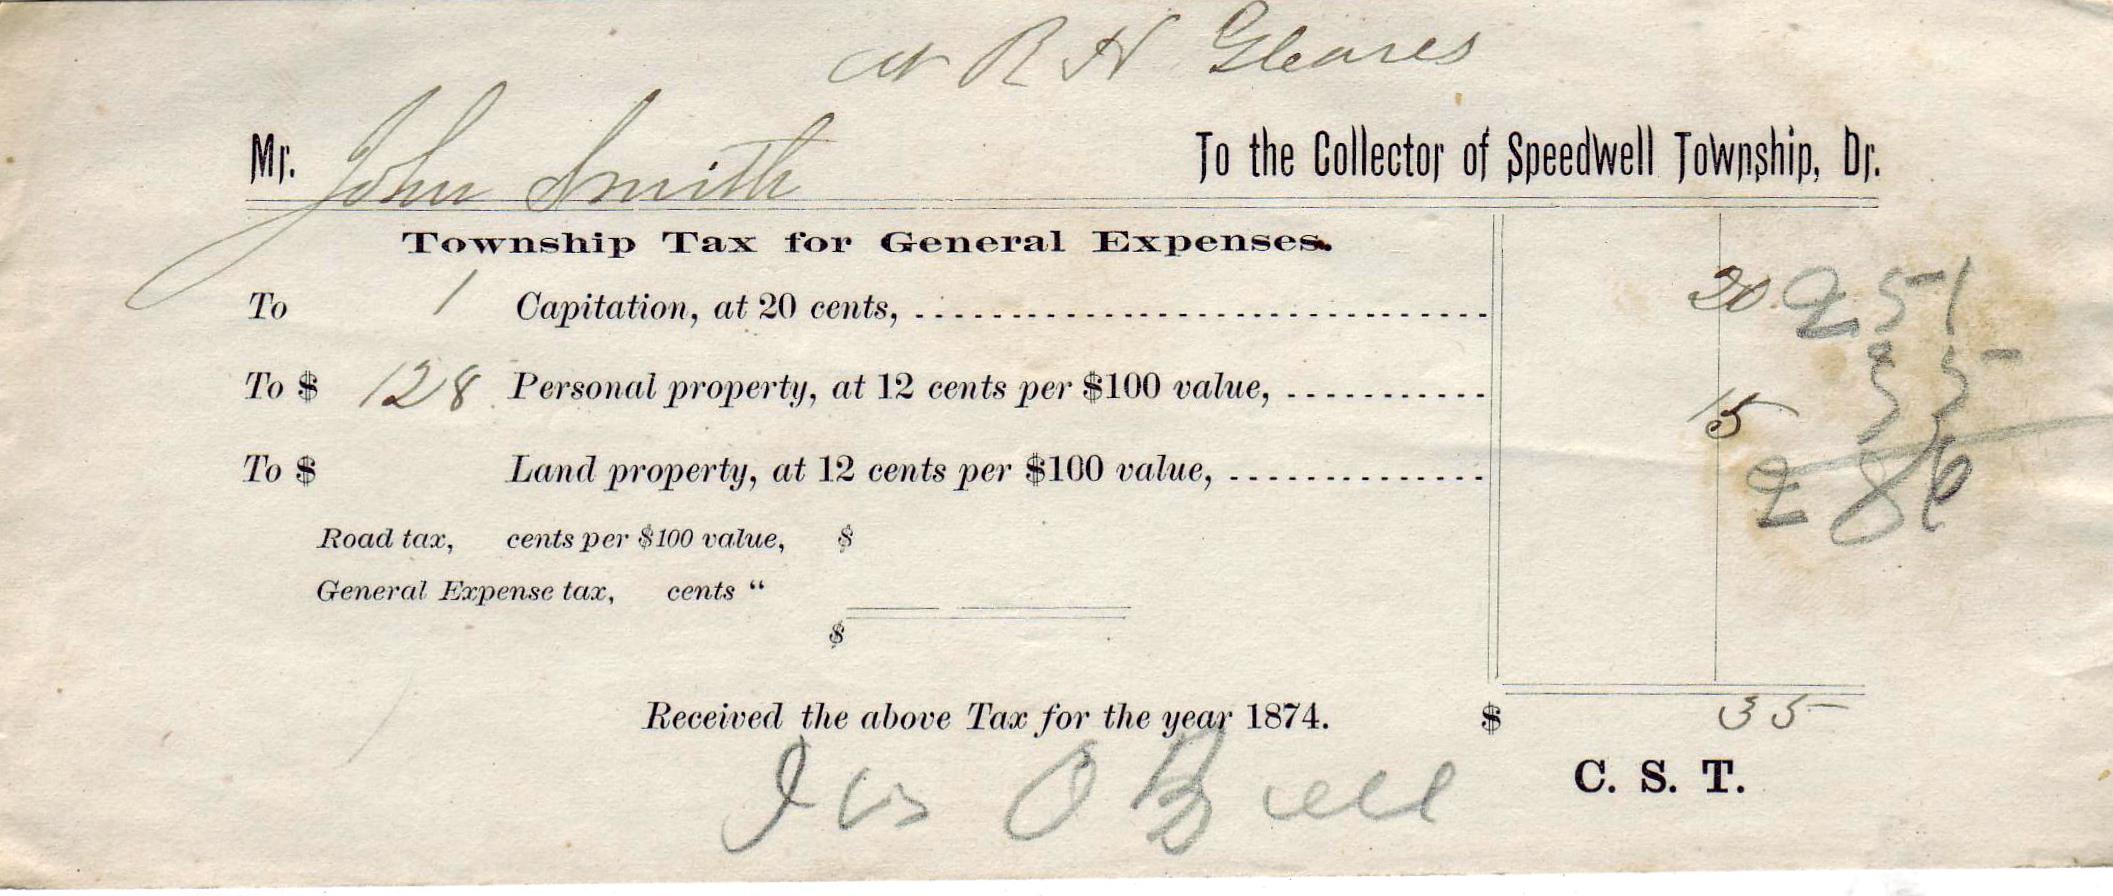 at R H Gleaves
Mr. John Smith To the Collector of Speedwell Township, Dr.
Township Tax for General Expenses.
To 1 Capitation, at 20 cents, 20 2 51
To $ 128 Personal property, at 12 cents per $100 value, 15 35
To $ Land property, at 12 cents per $100 value, 2 86
Road tax, cents per $100 value, $
General Expense tax, cents “
$
Received the above Tax for the year 1874. $ 35
C. S. T.